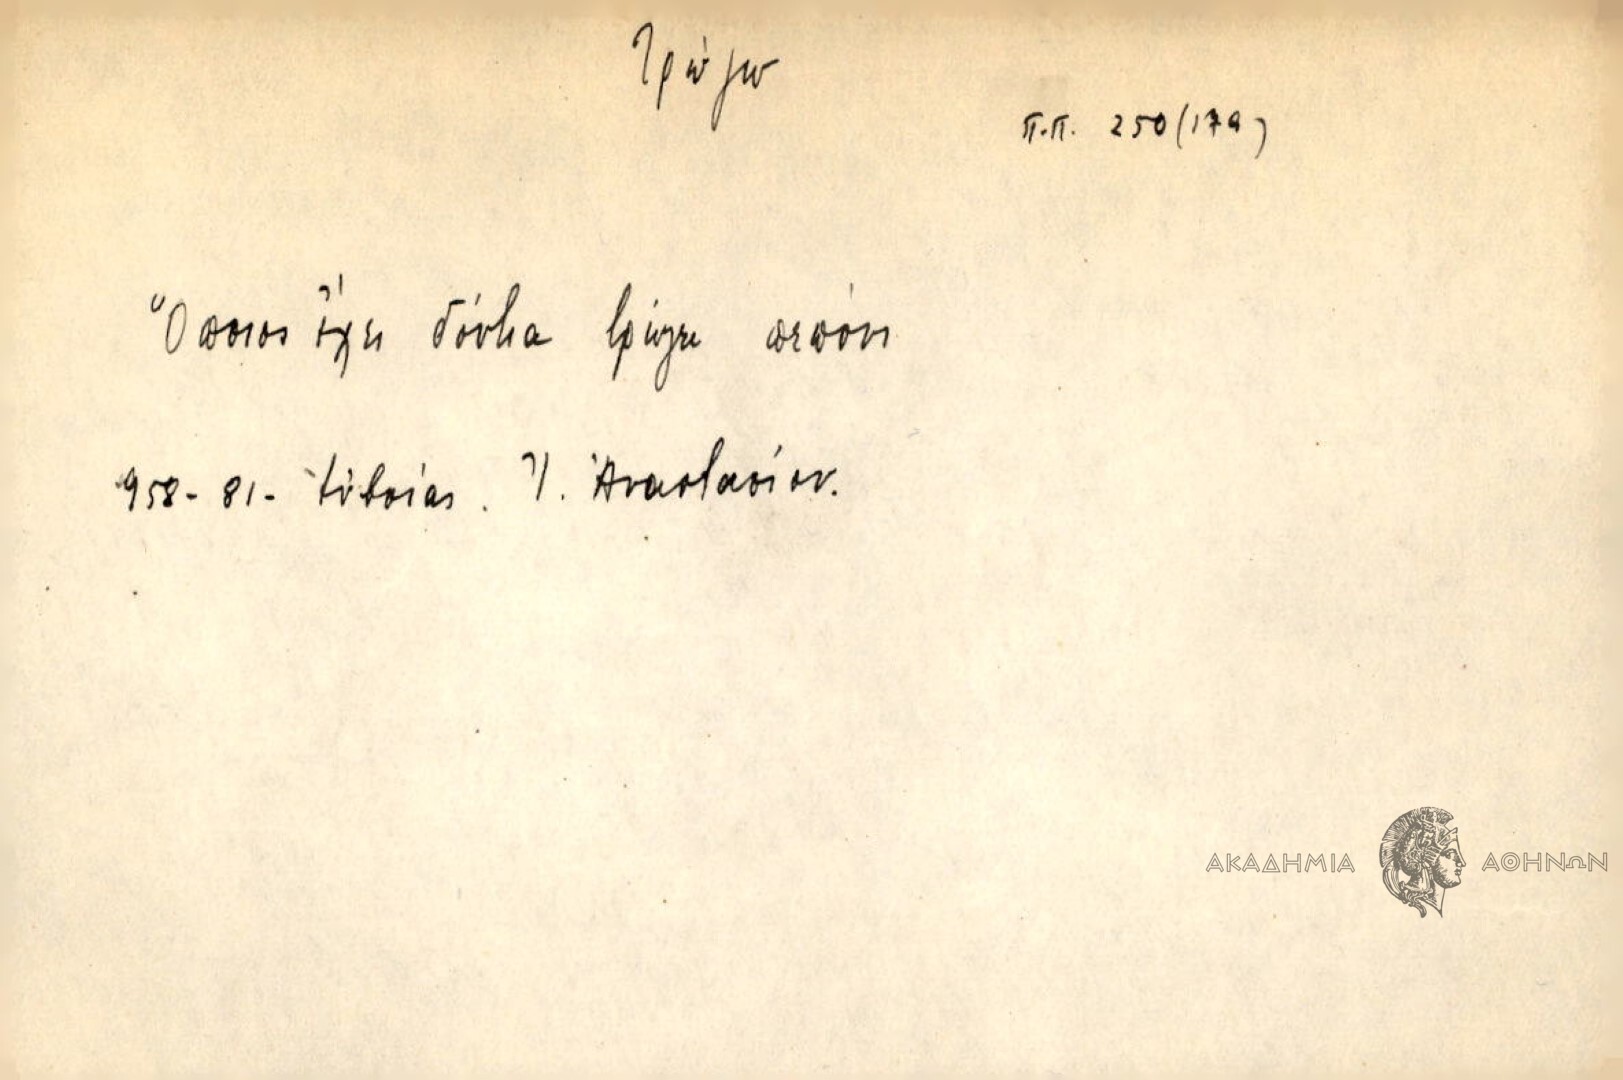 Τρώγω
π.π. 250 (179)
Ὅποιος ἔχει δόντια τρώγει πεπόνι
958-81- Εὐβοίας. Ἰ. Ἀναστασίου.
ΑΚΑΔΗΜΙΑ ΑΘΗΝΩΝ